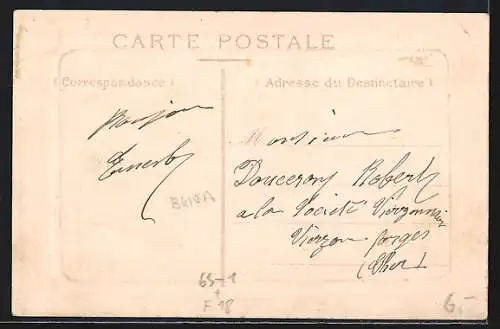 CARTE POSTALE
(Correspondance)
(Adresse du Destinataire)
Bonjour
Ernest
Monsieur
Doucerou Robert
a la Société Vierzonnaise
Vierzon forges
(Cher)
65-1
+
F 18
6.-